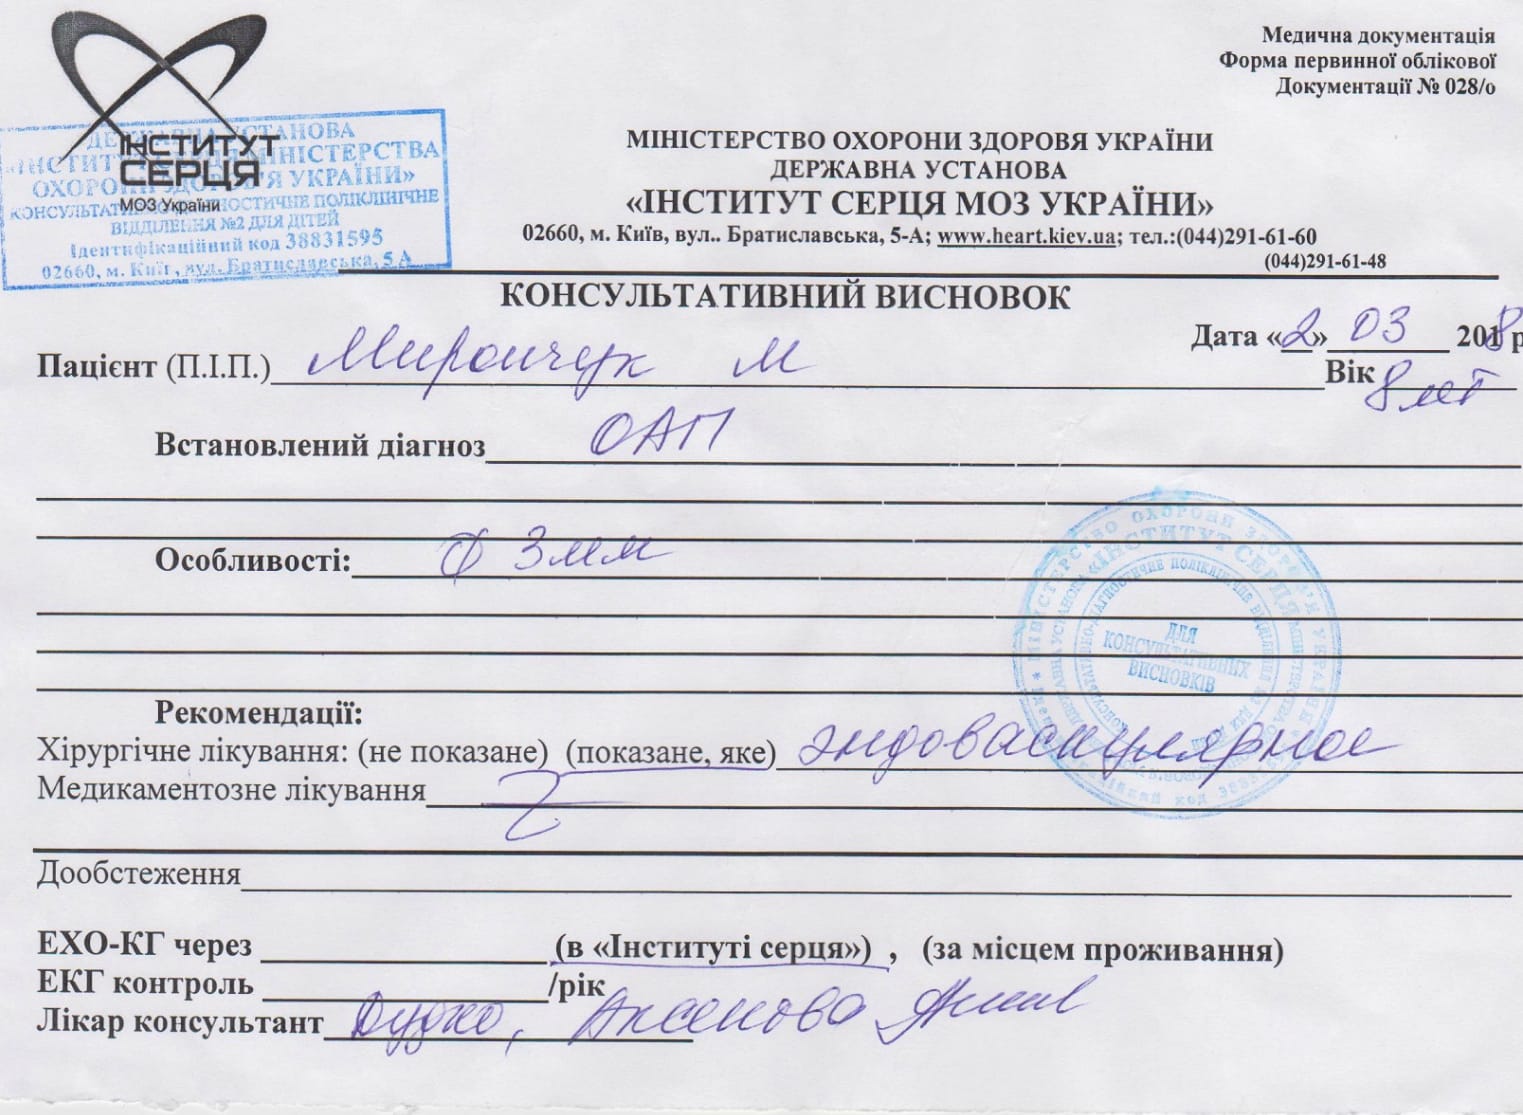 Медична документація
Форма первинної облікової
Документації № 028/о
ІНСТИТУТ
СЕРЦЯ
МОЗ України
ДЕРЖАВНА УСТАНОВА
«ІНСТИТУТ СЕРЦЯ МІНІСТЕРСТВА
ОХОРОНИ ЗДОРОВ'Я УКРАЇНИ»
КОНСУЛЬТАТИВНО-ДІАГНОСТИЧНЕ ПОЛІКЛІНІЧНЕ
ВІДДІЛЕННЯ №2 ДЛЯ ДІТЕЙ
Ідентифікаційний код 38831595
02660, м. Київ, вул. Братиславська, 5 А
МІНІСТЕРСТВО ОХОРОНИ ЗДОРОВЯ УКРАЇНИ
ДЕРЖАВНА УСТАНОВА
«ІНСТИТУТ СЕРЦЯ МОЗ УКРАЇНИ»
02660, м. Київ, вул.. Братиславська, 5-А; www.heart.kiev.ua; тел.:(044)291-61-60
(044)291-61-48
КОНСУЛЬТАТИВНИЙ ВИСНОВОК
Дата «2» 03 2018 р
Пацієнт (П.І.П.) Мирончук М Вік 8 лет
Встановлений діагноз ОАП
Особливості: Ф 3мм
ДЛЯ
КОНСУЛЬТАТИВНИХ
ВИСНОВКІВ
Рекомендації:
Хірургічне лікування: (не показане) (показане, яке) эндоваскулярное
Медикаментозне лікування
Дообстеження
ЕХО-КГ через (в «Інституті серця») , (за місцем проживання)
ЕКГ контроль /рік
Лікар консультант Дудко, Аксенова